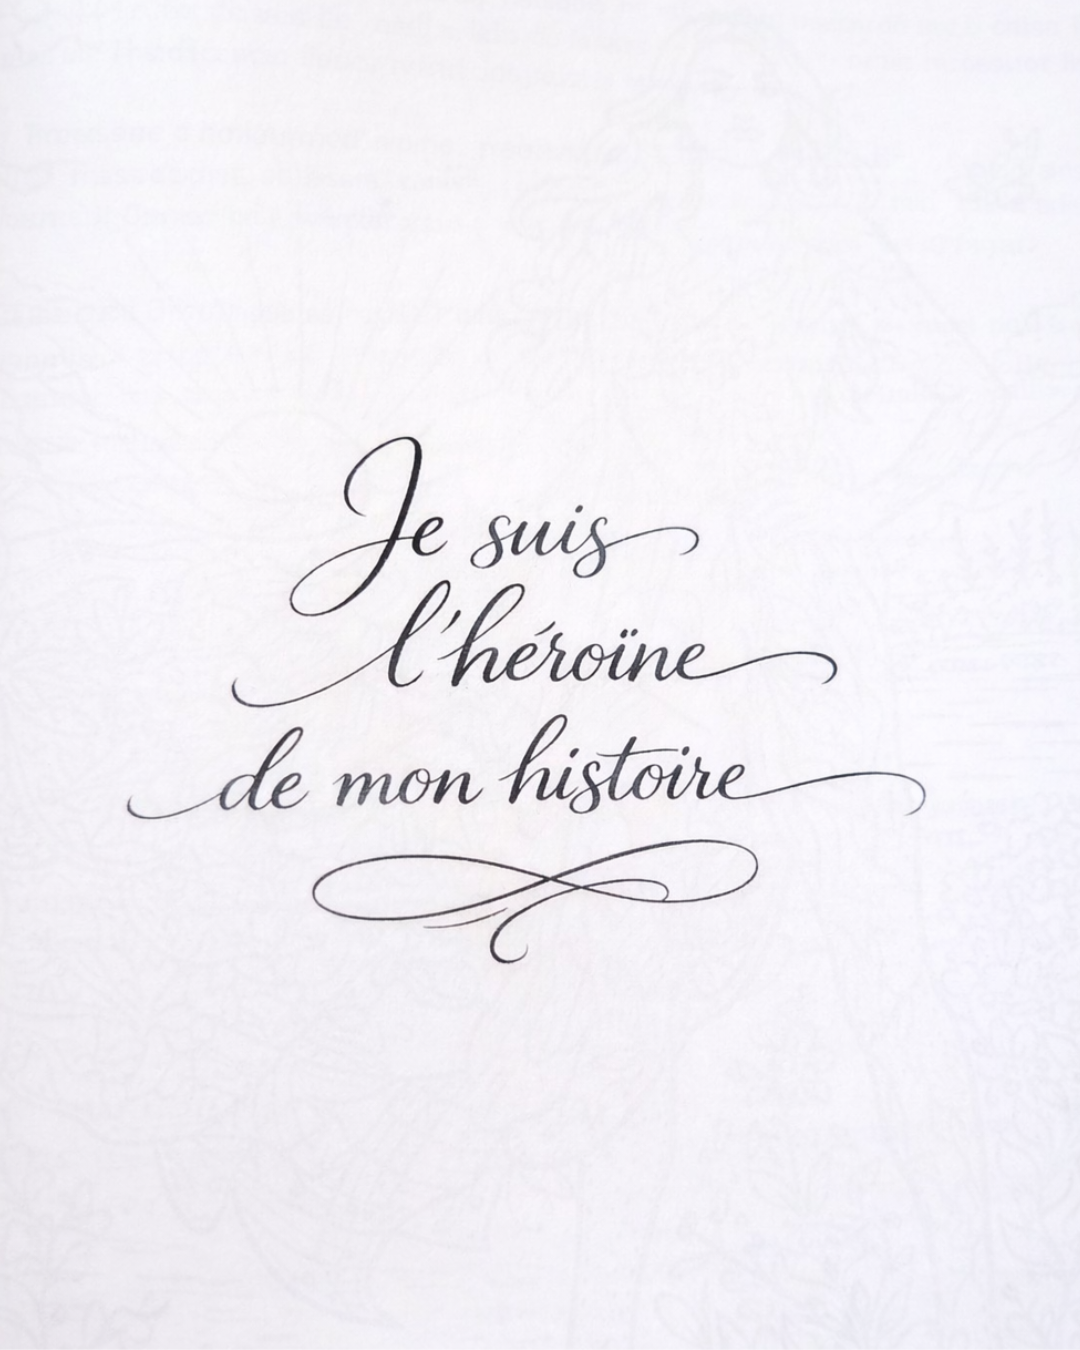 Je suis
l'héroïne
de mon histoire